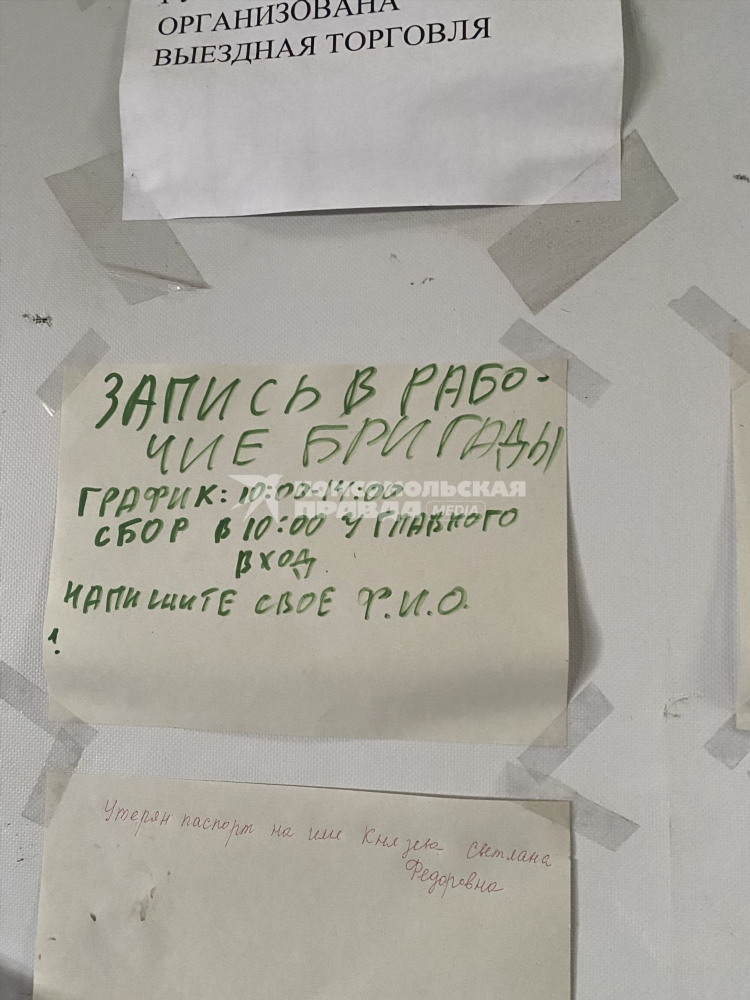 ОРГАНИЗОВАНА
ВЫЕЗДНАЯ ТОРГОВЛЯ
ЗАПИСЬ В РАБО-
ЧИЕ БРИГАДЫ
ГРАФИК: 10:00-14:00
СБОР В 10:00 У ГЛАВНОГО
ВХОД
НАПИШИТЕ СВОЕ Ф.И.О.
1.
КОМСОМОЛЬСКАЯ
ПРАВДА MEDIA
Утерян паспорт на имя Князева Светлана
Федоровна